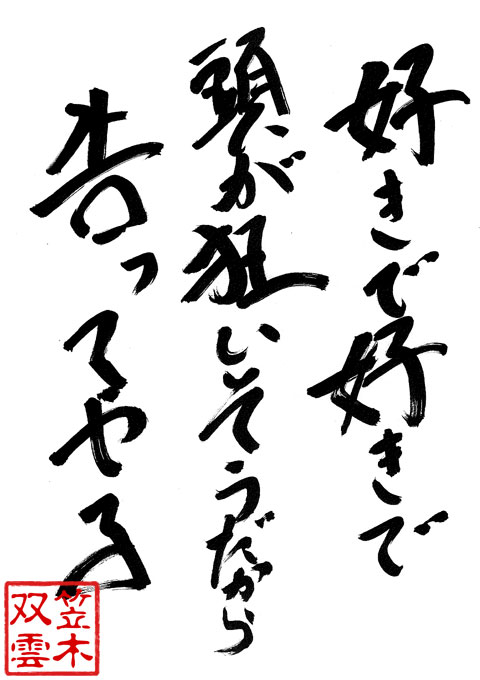 好きで好きで
頭が狂いそうだから
告ってやる
笠木
双雲